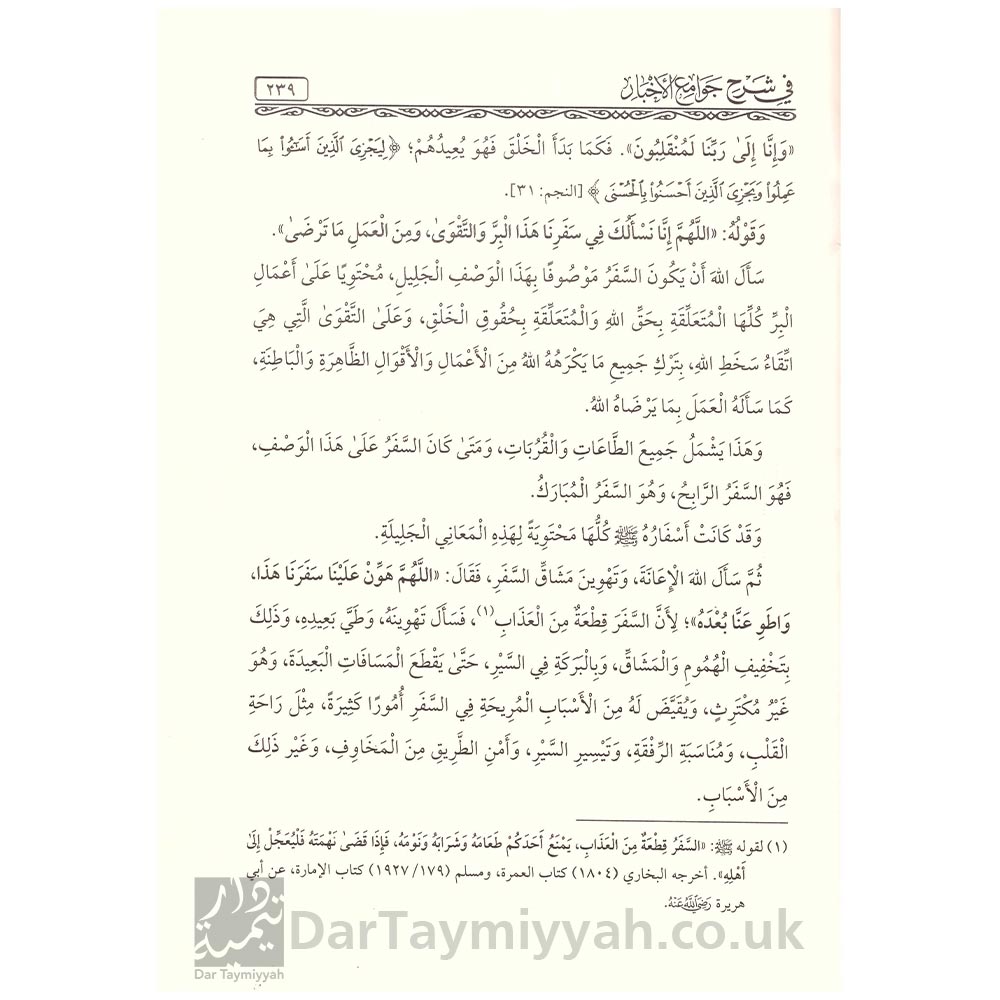 في شرح جوامع الأخبار
٢٣٩
«وَإِنَّا إِلَىٰ رَبِّنَا لَمُنْقَلِبُونَ». فَكَمَا بَدَأَ الْخَلْقَ فَهُوَ يُعِيدُهُمْ؛ ﴿لِيَجْزِيَ ٱلَّذِينَ أَسَٰٓـُٔوا۟ بِمَا
عَمِلُوا۟ وَيَجْزِيَ ٱلَّذِينَ أَحْسَنُوا۟ بِٱلْحُسْنَى﴾ [النجم: ٣١].
وَقَوْلُهُ: «اللَّهُمَّ إِنَّا نَسْأَلُكَ فِي سَفَرِنَا هَذَا الْبِرَّ وَالتَّقْوَىٰ، وَمِنَ الْعَمَلِ مَا تَرْضَىٰ».
سَأَلَ اللهَ أَنْ يَكُونَ السَّفَرُ مَوْصُوفًا بِهَذَا الْوَصْفِ الْجَلِيلِ، مُحْتَوِيًا عَلَىٰ أَعْمَالِ
الْبِرِّ كُلِّهَا الْمُتَعَلِّقَةِ بِحَقِّ اللهِ وَالْمُتَعَلِّقَةِ بِحُقُوقِ الْخَلْقِ، وَعَلَىٰ التَّقْوَىٰ الَّتِي هِيَ
اتِّقَاءُ سَخَطِ اللهِ، بِتَرْكِ جَمِيعِ مَا يَكْرَهُهُ اللهُ مِنَ الْأَعْمَالِ وَالْأَقْوَالِ الظَّاهِرَةِ وَالْبَاطِنَةِ،
كَمَا سَأَلَهُ الْعَمَلَ بِمَا يَرْضَاهُ اللهُ.
وَهَذَا يَشْمَلُ جَمِيعَ الطَّاعَاتِ وَالْقُرُبَاتِ، وَمَتَىٰ كَانَ السَّفَرُ عَلَىٰ هَذَا الْوَصْفِ،
فَهُوَ السَّفَرُ الرَّابِحُ، وَهُوَ السَّفَرُ الْمُبَارَكُ.
وَقَدْ كَانَتْ أَسْفَارُهُ ﷺ كُلُّهَا مَحْتَوِيَةً لِهَذِهِ الْمَعَانِي الْجَلِيلَةِ.
ثُمَّ سَأَلَ اللهَ الْإِعَانَةَ، وَتَهْوِينَ مَشَاقِّ السَّفَرِ، فَقَالَ: «اللَّهُمَّ هَوِّنْ عَلَيْنَا سَفَرَنَا هَذَا،
وَاطْوِ عَنَّا بُعْدَهُ»؛ لِأَنَّ السَّفَرَ قِطْعَةٌ مِنَ الْعَذَابِ(١)، فَسَأَلَ تَهْوِينَهُ، وَطَيَّ بَعِيدِهِ، وَذَلِكَ
بِتَخْفِيفِ الْهُمُومِ وَالْمَشَاقِّ، وَبِالْبَرَكَةِ فِي السَّيْرِ، حَتَّىٰ يَقْطَعَ الْمَسَافَاتِ الْبَعِيدَةَ، وَهُوَ
غَيْرُ مُكْتَرِثٍ، وَيُقَيِّضَ لَهُ مِنَ الْأَسْبَابِ الْمُرِيحَةِ فِي السَّفَرِ أُمُورًا كَثِيرَةً، مِثْلَ رَاحَةِ
الْقَلْبِ، وَمُنَاسَبَةِ الرِّفْقَةِ، وَتَيْسِيرِ السَّيْرِ، وَأَمْنِ الطَّرِيقِ مِنَ الْمَخَاوِفِ، وَغَيْرِ ذَلِكَ
مِنَ الْأَسْبَابِ.
(١) لقوله ﷺ: «السَّفَرُ قِطْعَةٌ مِنَ الْعَذَابِ، يَمْنَعُ أَحَدَكُمْ طَعَامَهُ وَشَرَابَهُ وَنَوْمَهُ، فَإِذَا قَضَىٰ نَهْمَتَهُ فَلْيُعَجِّلْ إِلَىٰ
أَهْلِهِ». أخرجه البخاري (١٨٠٤) كتاب العمرة، ومسلم (١٧٩/ ١٩٢٧) كتاب الإمارة، عن أبي
هريرة رَضِيَ اللَّهُ عَنْهُ.
دار تيمية
Dar Taymiyyah
DarTaymiyyah.co.uk